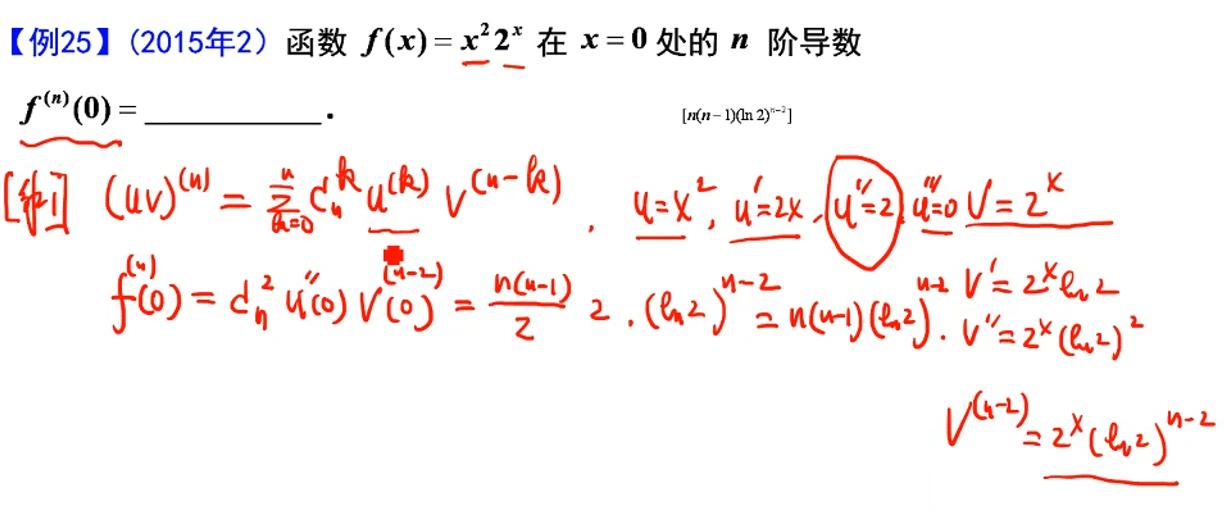 【例25】(2015年2) 函数 f(x) = x²2ˣ 在 x = 0 处的 n 阶导数
f⁽ⁿ⁾(0) = ____________. [n(n−1)(ln 2)ⁿ⁻²]
[解1] (uv)⁽ⁿ⁾ = Σₖ₌₀ⁿ Cₙᵏ u⁽ᵏ⁾ v⁽ⁿ⁻ᵏ⁾ , u = x², u' = 2x, u'' = 2, u''' = 0 v = 2ˣ
f⁽ⁿ⁾(0) = Cₙ² u''(0) v⁽ⁿ⁻²⁾(0) = n(n-1)/2 2 · (ln2)ⁿ⁻² = n(n-1)(ln2)ⁿ⁻². v' = 2ˣ ln 2
v'' = 2ˣ (ln2)²
v⁽ⁿ⁻²⁾ = 2ˣ (ln2)ⁿ⁻²